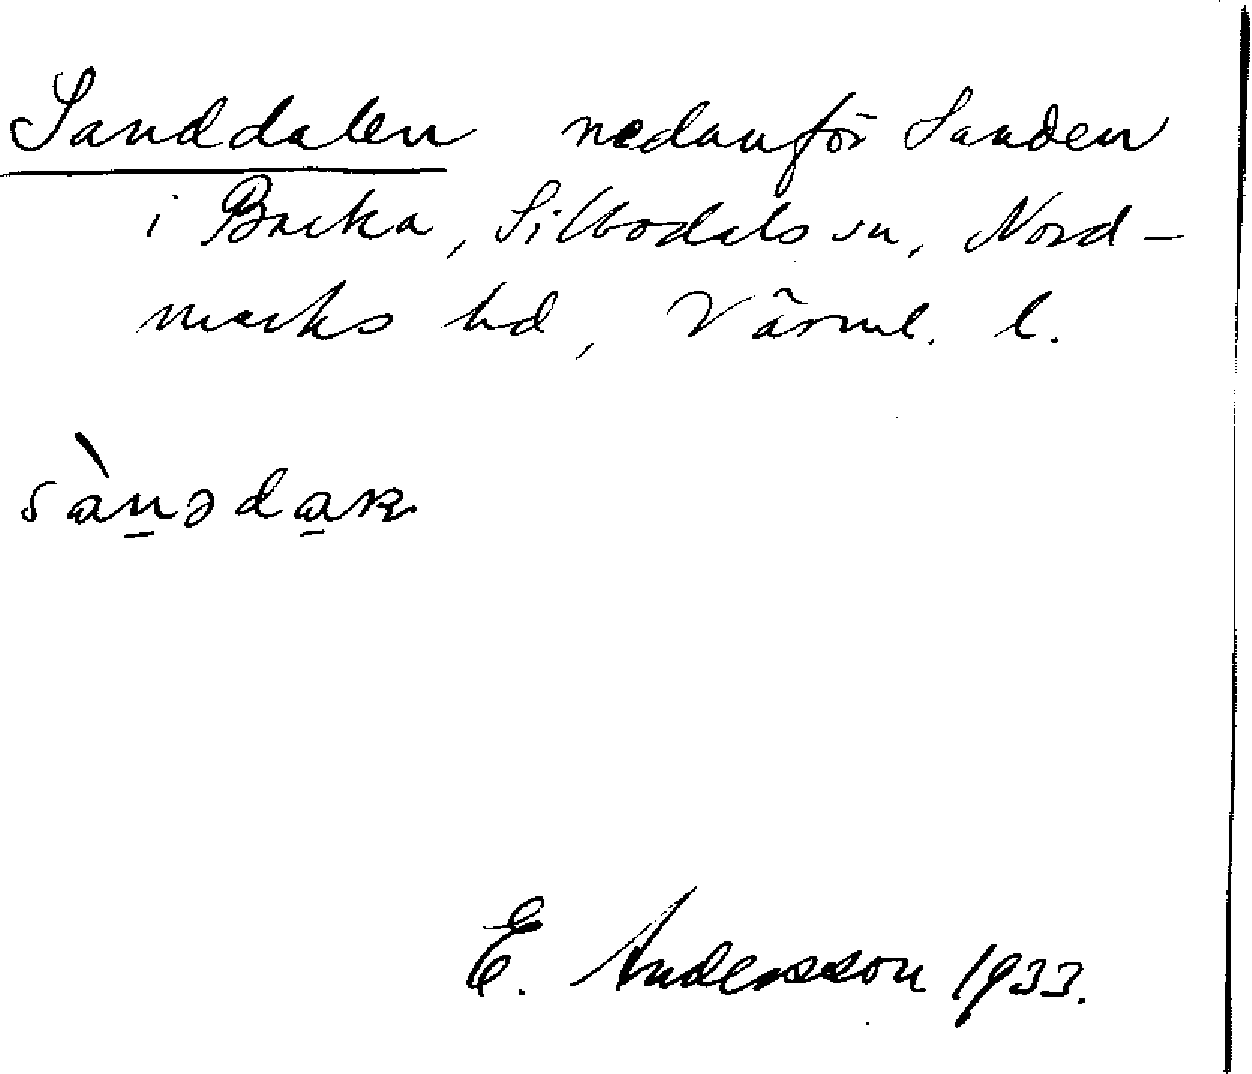 Sanddalen nedanför Sanden
i Backa, Silbodals sn, Nord-
marks hd, Värml. l.
E. Andersson 1933.